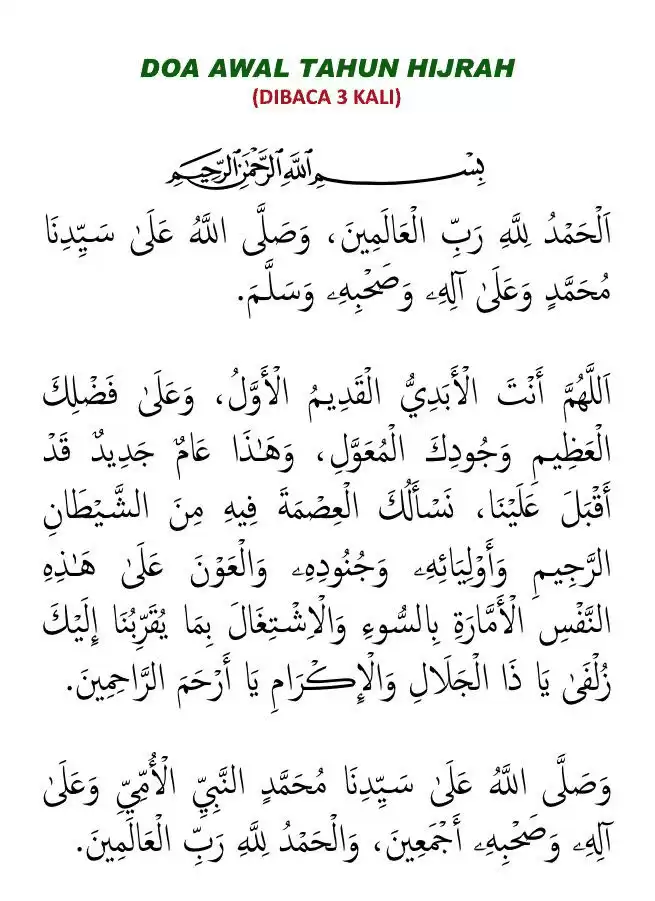 DOA AWAL TAHUN HIJRAH
(DIBACA 3 KALI)
بِسْمِ اللَّهِ الرَّحْمَٰنِ الرَّحِيمِ
اَلْحَمْدُ لِلَّهِ رَبِّ الْعَالَمِينَ، وَصَلَّى اللَّهُ عَلَىٰ سَيِّدِنَا
مُحَمَّدٍ وَعَلَىٰ آلِهِۦ وَصَحْبِهِۦ وَسَلَّمَ.
اَللَّهُمَّ أَنْتَ الْأَبَدِيُّ الْقَدِيمُ الْأَوَّلُ، وَعَلَىٰ فَضْلِكَ
الْعَظِيمِ وَجُودِكَ الْمُعَوَّلِ، وَهَـٰذَا عَامٌ جَدِيدٌ قَدْ
أَقْبَلَ عَلَيْنَا، نَسْأَلُكَ الْعِصْمَةَ فِيهِ مِنَ الشَّيْطَانِ
الرَّجِيمِ وَأَوْلِيَائِهِۦ وَجُنُودِهِۦ وَالْعَوْنَ عَلَىٰ هَـٰذِهِ
النَّفْسِ الْأَمَّارَةِ بِالسُّوءِ وَالْاِشْتِغَالَ بِمَا يُقَرِّبُنَا إِلَيْكَ
زُلْفَىٰ يَا ذَا الْجَلَالِ وَالْإِكْرَامِ يَا أَرْحَمَ الرَّاحِمِينَ.
وَصَلَّى اللَّهُ عَلَىٰ سَيِّدِنَا مُحَمَّدٍ النَّبِيِّ الْأُمِّيِّ وَعَلَىٰ
آلِهِۦ وَصَحْبِهِۦ أَجْمَعِينَ، وَالْحَمْدُ لِلَّهِ رَبِّ الْعَالَمِينَ.